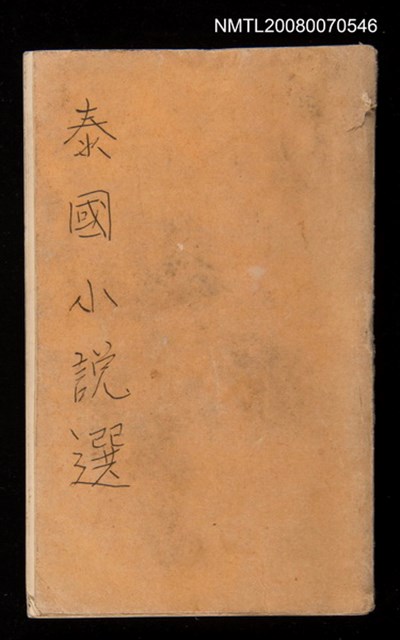 NMTL20080070546
泰國小說選